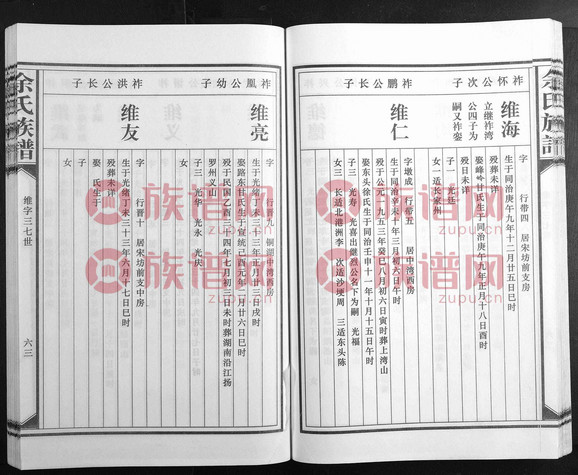 余氏族谱
祚怀公次子
维海
立继祚湾
公四子为
嗣又祚銮
字 行带四 居宋坊前支中房
生于同治庚午九年十二月廿五日巳时
殁葬未详
娶峰吟甘氏生于同治庚午九年正月十八日酉时
殁日未详
子一 光廷
女一适长家州
祚鹏公长子
维仁
字墩成 行带五 湖中湾西房
生于同治辛未十年三月初六日午时
殁于公元一九五三年癸巳八月初六日寅时葬上湾山
娶东头徐氏生于同治壬申十一年十月十五日午时
子三 光寿 光喜出继烈公名下为嗣 光福
女三 长适北港洲李 次适沙埂周 三适东头陈
祚凰公幼子
维亮
字 行晋九 铜湖中湾西房
生于光绪丁未三十三年正月廿三日戌时
殁于民国乙酉三十四年七月初三日未时葬湖南沿江扬
罗州义山
娶路东甘氏生于宣统己酉元年二月廿六日巳时
子三 光华 光永 光庆
女
祚洪公长子
维友
字 行晋十 居宋坊前支中房
生于光绪丁未三十三年六月十七日巳时
殁葬未详
娶 氏生于
子
女
余氏族谱
维字三七世
六三
族谱网
zupu.cn
族谱网
zupu.cn
族谱网
zupu.cn
族谱网
zupu.cn